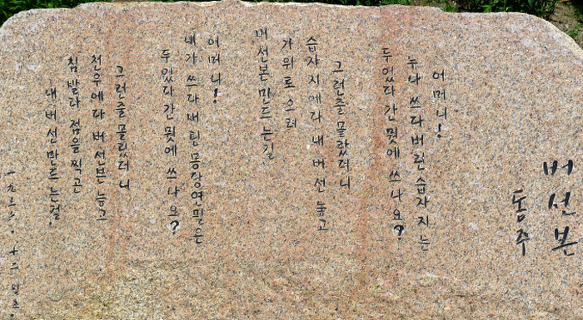 버선본
동주
어머니!
누나 쓰다버린 습자지는
두었다간 뭣에 쓰나요?
그런줄 몰랐더니
습자지에다 내버선 놓고
가위로 오려
버선본 만드는걸.
어머니!
내가 쓰다버린 몽당연필은
두었다간 뭣에 쓰나요?
그런줄 몰랐더니
천우에다 버선본놓고
침 발라 점을찍곤
내버선 만드는걸.
一九三六. 十二月초.